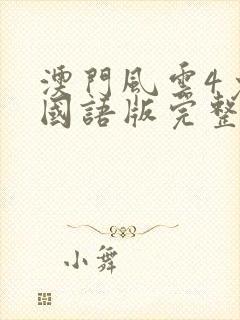 澳門風雲4
國語版完整
小舞